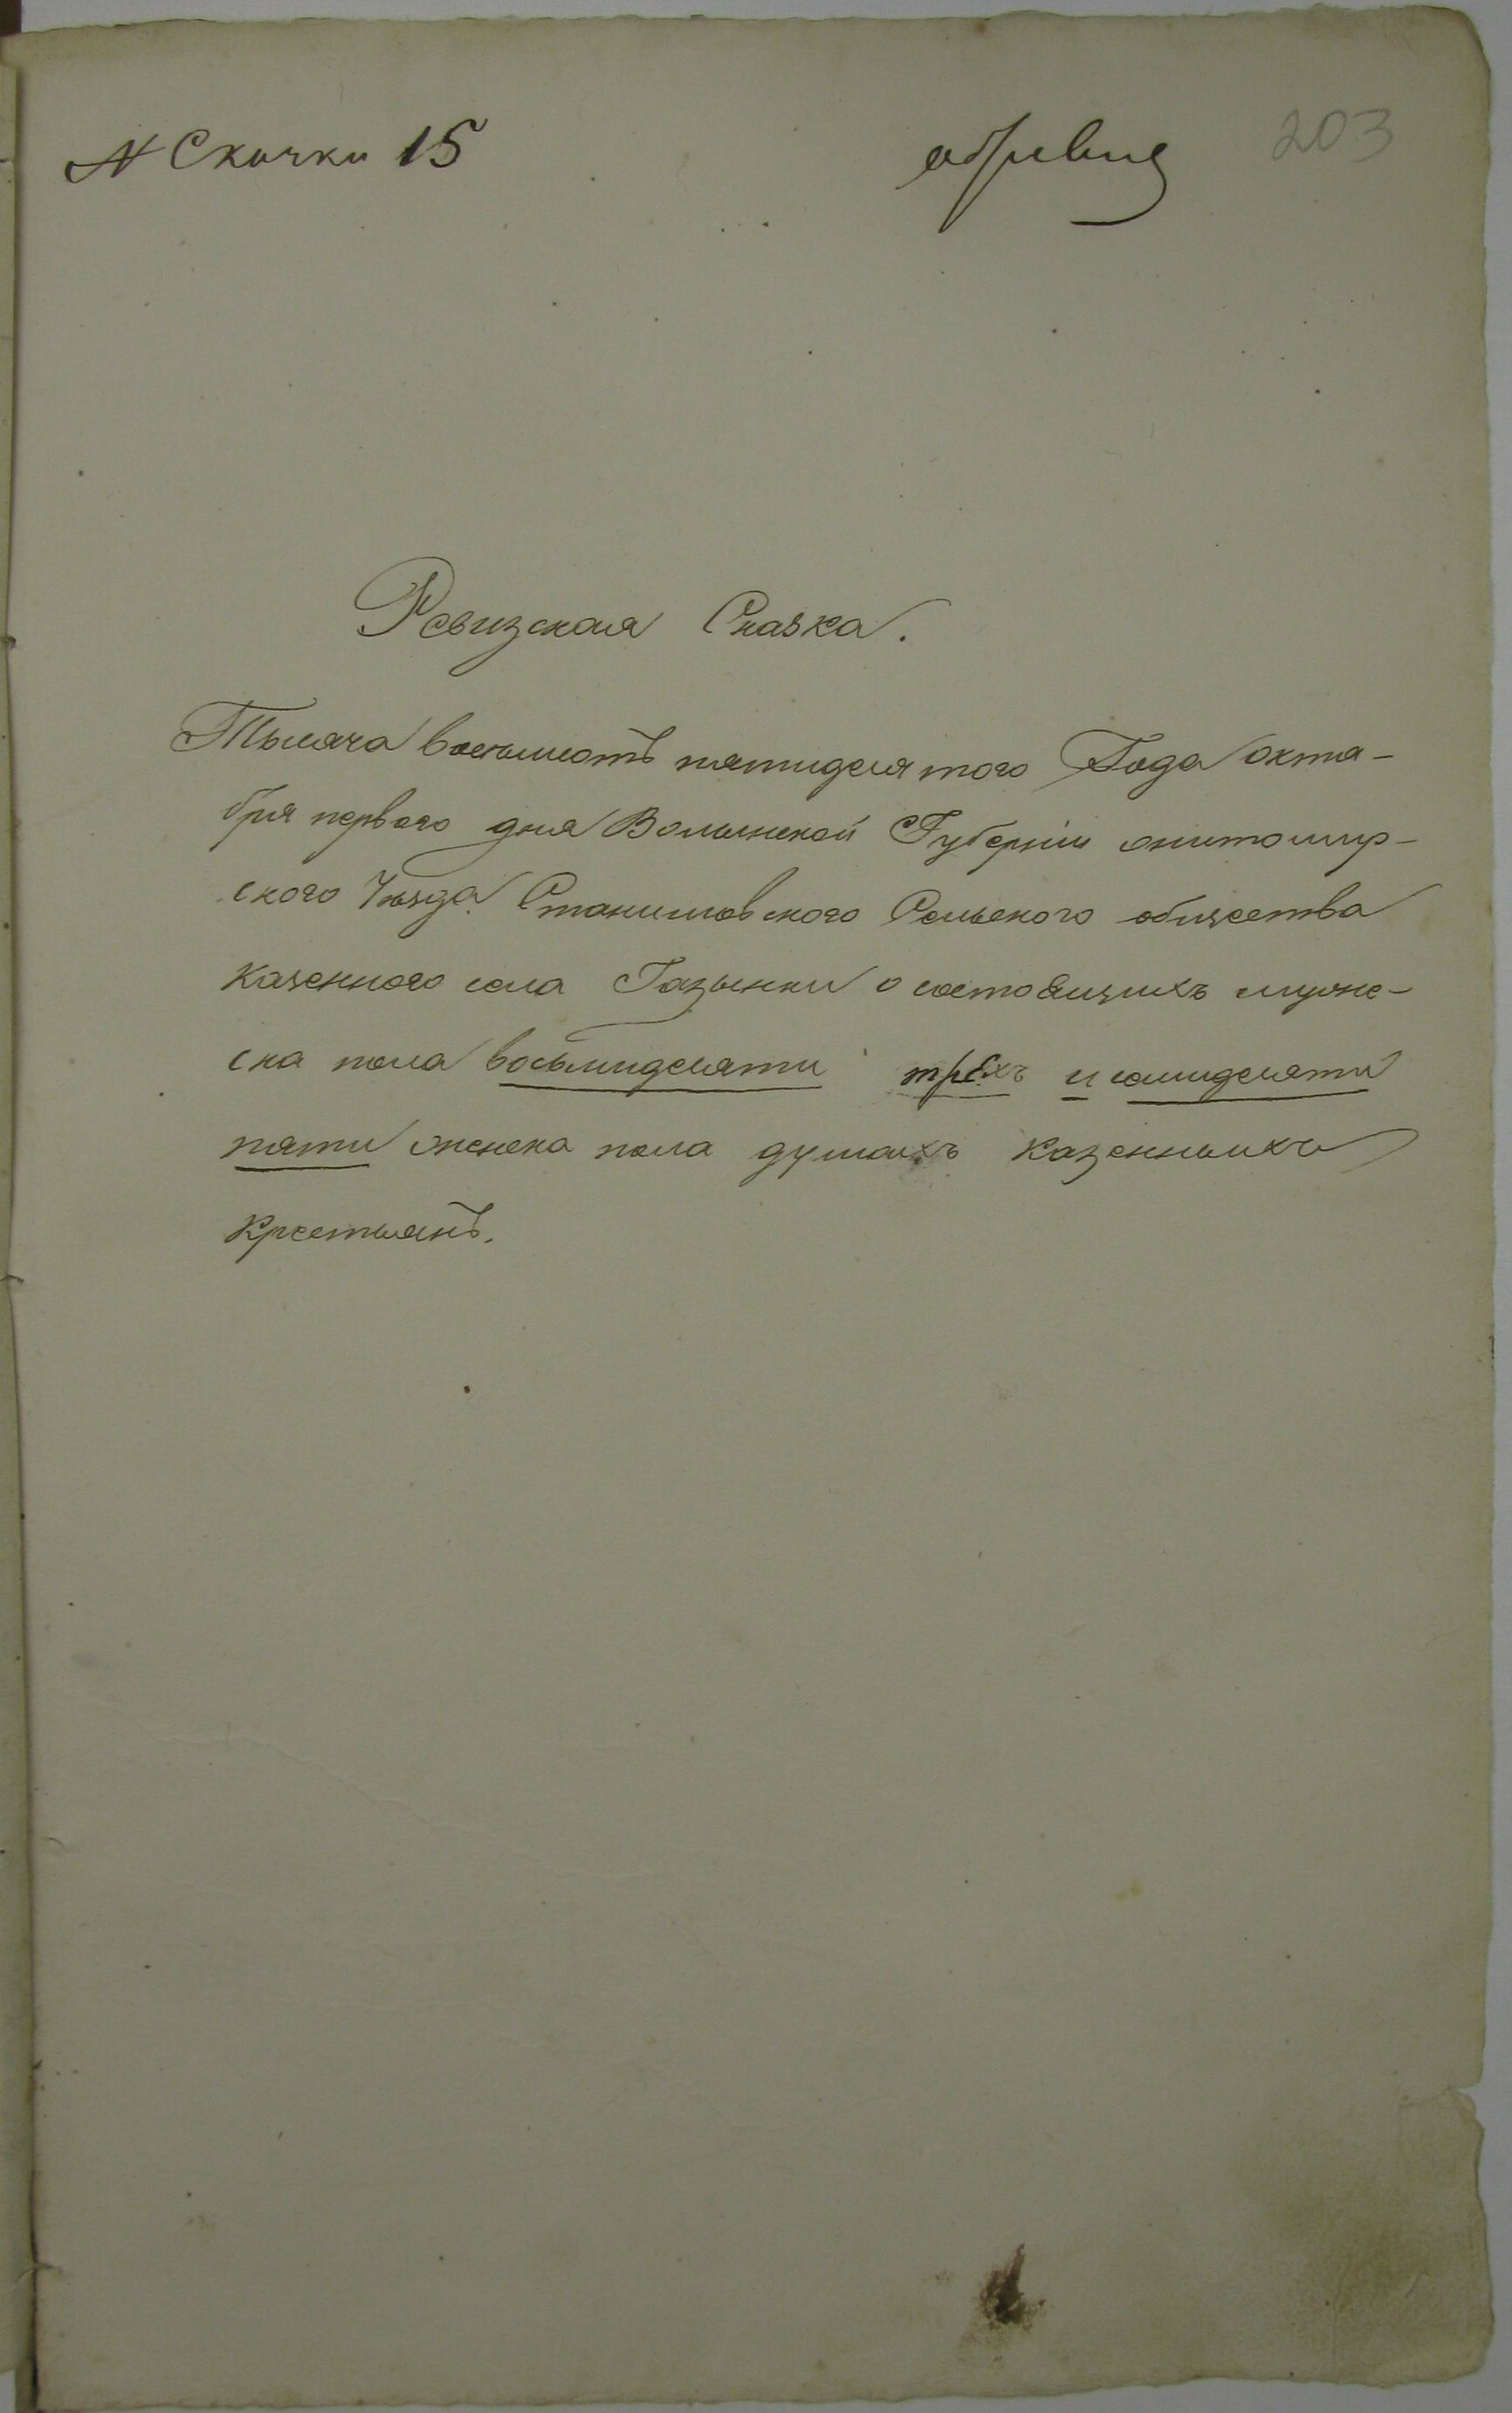 N Скачки 15
203
Ревизская Сказка.
Тысяча восемьсотъ пятидесятого Года октя-
бря первого дня Волынской Губерніи житомир-
ского Уезда Станишовского Сельского общества
Казенного села Газынки о состоящихъ мужес-
ска пола восьмидесяти трехъ и семидесяти
пяти женска пола душахъ Казенныхъ
Крестьянъ.